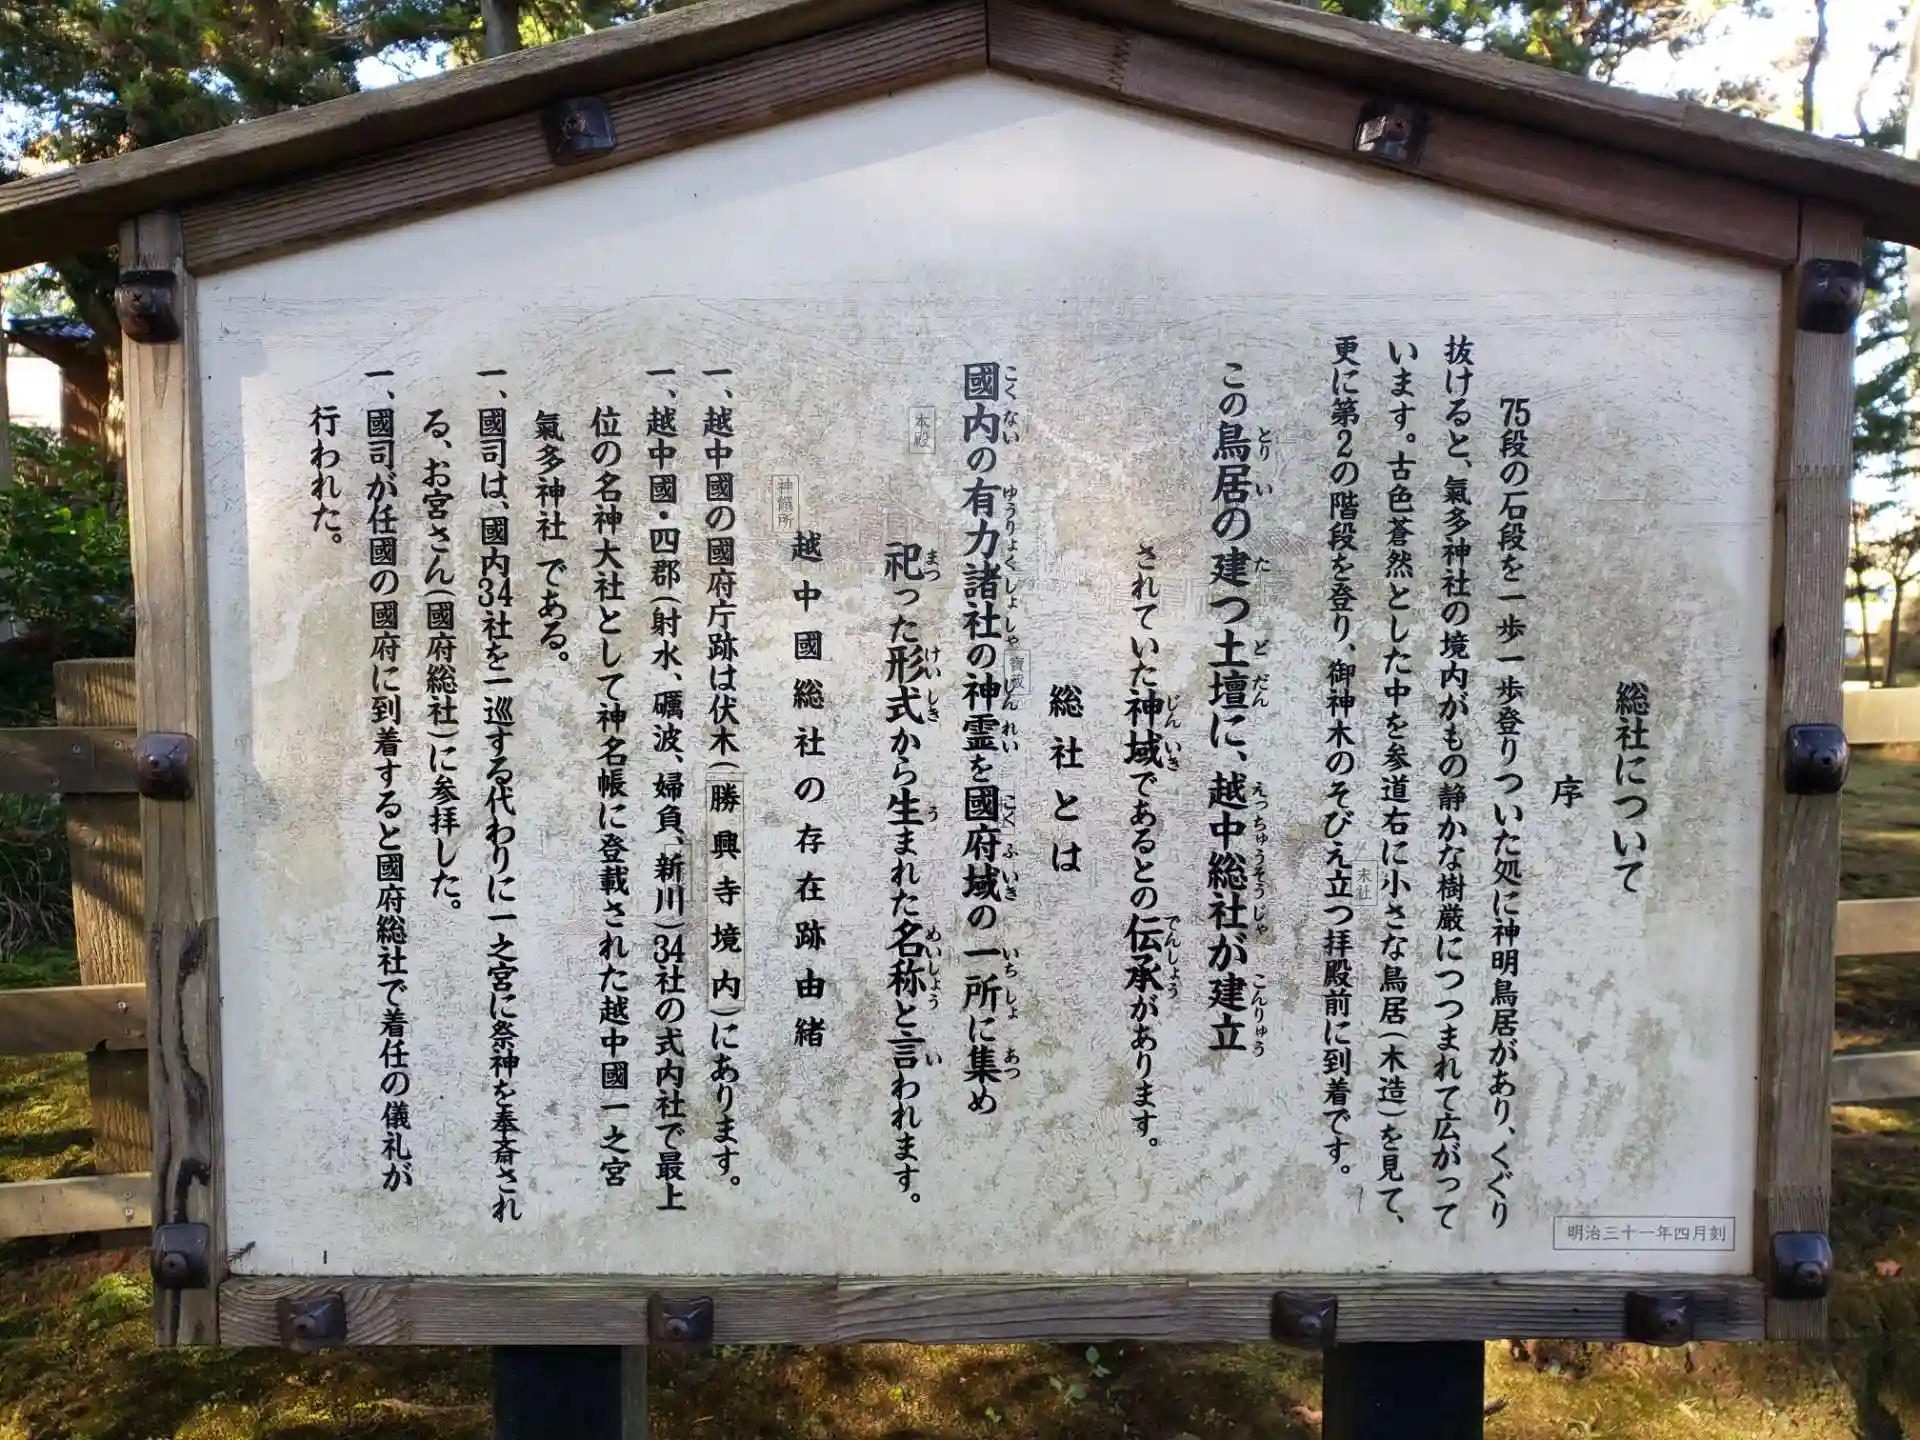 総社について
序
75段の石段を一歩一歩登りついた処に神明鳥居があり、くぐり
抜けると、氣多神社の境内がもの静かな樹厳につつまれて広がって
います。古色蒼然とした中を参道右に小さな鳥居(木造)を見て、
更に第2の階段を登り、御神木のそびえ立つ拝殿前に到着です。
この鳥居の建つ土壇に、越中総社が建立
とりい た どだん えっちゅうそうじゃ こんりゅう
されていた神域であるとの伝承があります。
じんいき でんしょう
総社とは
國内の有力諸社の神霊を國府域の一所に集め
こくない ゆうりょくしょしゃ しんれい こくふいき いちしょ あつ
祀った形式から生まれた名称と言われます。
まつ けいしき う めいしょう い
越中國総社の存在跡由緒
一、越中國の國府庁跡は伏木(勝興寺境内)にあります。
一、越中國・四郡(射水、礪波、婦負、新川)34社の式内社で最上
位の名神大社として神名帳に登載された越中國一之宮
氣多神社 である。
一、國司は、國内34社を一巡する代わりに一之宮に祭神を奉斎され
る、お宮さん(國府総社)に参拝した。
一、國司が任國の國府に到着すると國府総社で着任の儀礼が
行われた。
本殿
神饌所
寶蔵
末社
明治三十一年四月刻